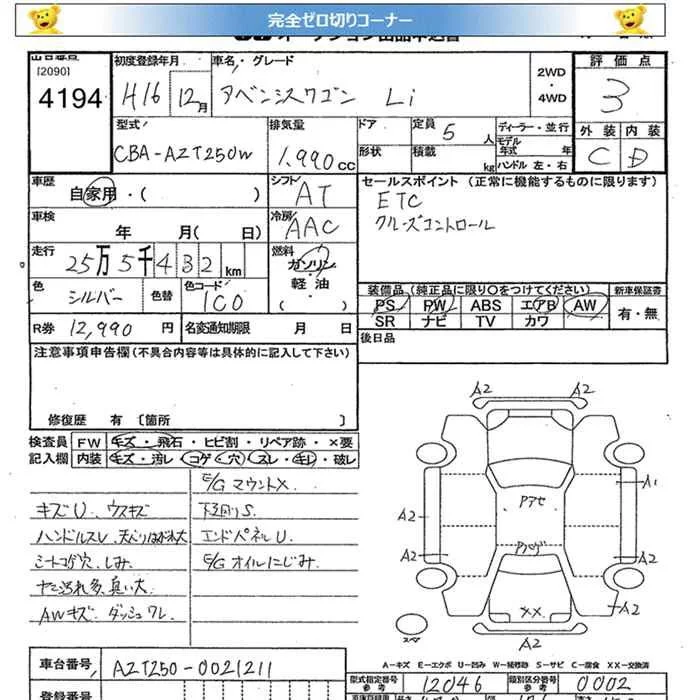 完全ゼロ切りコーナー
[2090]
4194
初度登録年月
H16 12月
車名・グレード
アベンシスワゴン Li
2WD
・
4WD
評価点
3
型式
CBA-AZT250W
排気量
1,990cc
ドア
形状
定員 5 人
積載 kg
ディーラー・並行
モデル年式 年
ハンドル 左・右
外装 内装
C D
車歴
自家用・( )
シフト
AT
セールスポイント (正常に機能するものに限ります)
ETC
クルーズコントロール
車検
年 月( 日)
冷房
AAC
走行
25万5千432km
燃料
ガソリン
軽・油
( )
色
シルバー
色替
色コード
1C0
装備品(純正品に限り○をつけてください)
新車保証書
PS PW ABS エアB AW
有・無
SR ナビ TV カワ
R券 12,990 円
名変通知期限 月 日
後日品
注意事項申告欄(不具合内容等は具体的に記入して下さい)
修復歴 有〔箇所 〕
検査員
記入欄
FW キズ・飛石・ヒビ割・リペア跡・×要
内装 キズ・汚レ・コゲ・穴・スレ・キレ・破レ
E/GマウントX.
キズU、ウスキズ
下廻りS.
ハンドルスレ、天ベリはがれ大
エンドパネルU.
シートコゲ穴、しみ
E/Gオイルにじみ.
ヤニ汚れ多、臭い大
AWキズ、ダッシュワレ
A2 A2
A1
アケセ
A2
A2 A2
××
A2
A2
スペア
A-キズ E-エクボ U-凹み W-補修跡 S-サビ C-腐食 XX-交換済
車台番号
AZT250-0021211
型式指定番号
参考
12046
類別区分番号
参考
0002
登録番号